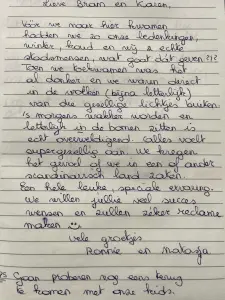 Lieve Bram en Karen,
Vóór we naar hier kwamen
hadden we zo onze bedenkingen;
winter, koud en wij 2 echte
stadsmensen, wat gaat dat geven???
Toen we toekwamen was het
al donker en we waren direct
in de wolken (bijna letterlijk)
van die gezellige lichtjes buiten.
's morgens wakker worden en
letterlijk in de bomen zitten is
echt overweldigend. Alles voelt
supergezellig aan. We kregen
het gevoel of we in een of ander
scandinavisch land zaten.
Een hele leuke, speciale ervaring.
We willen jullie veel succes
wensen en zullen zeker reclame
maken
Vele groetjes
Ronnie en Natasja
PS Gaan proberen nog eens terug
te komen met onze kids.